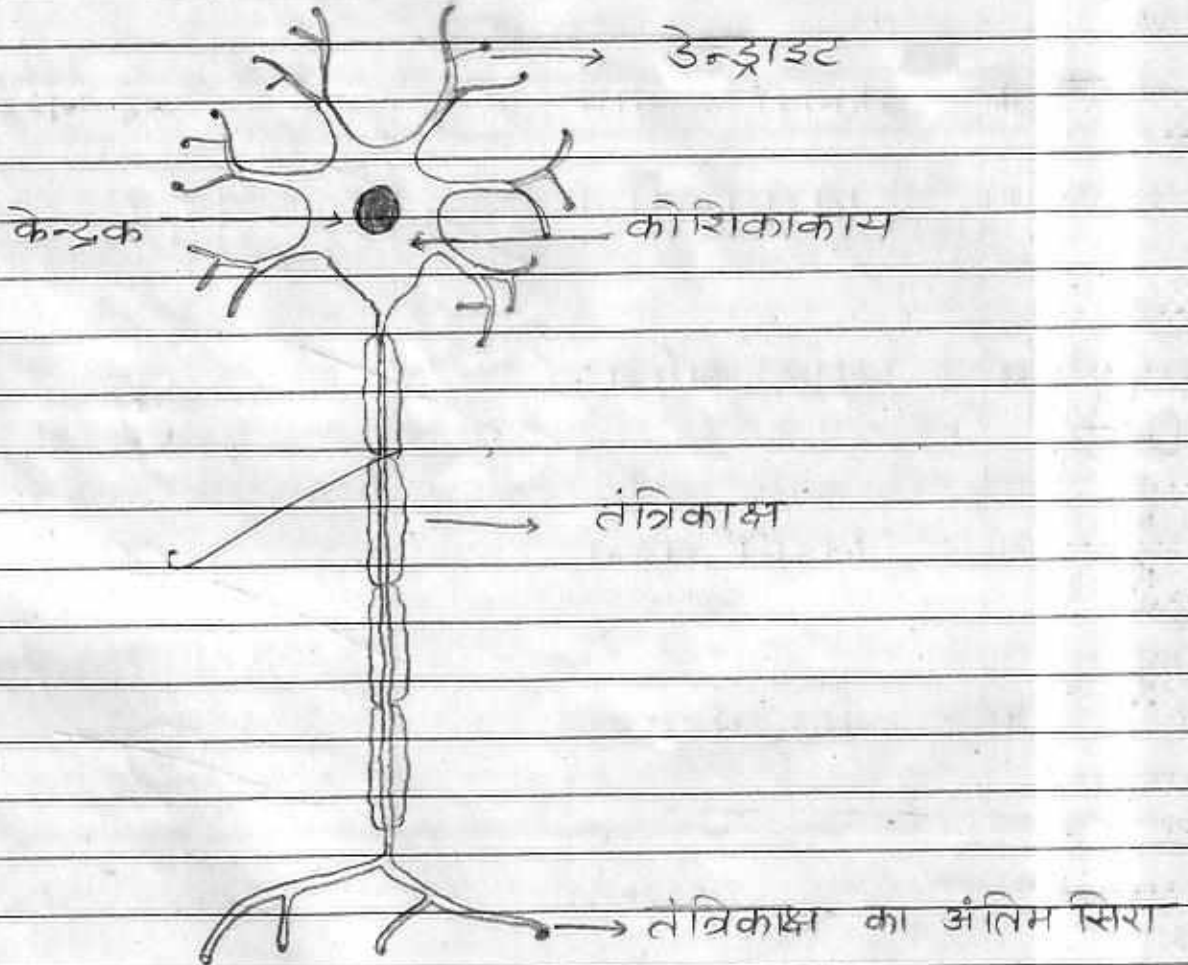 डेन्ड्राइट
केन्द्रक
कोशिकाकाय
तंत्रिकाक्ष
तंत्रिकाक्ष का अंतिम सिरा